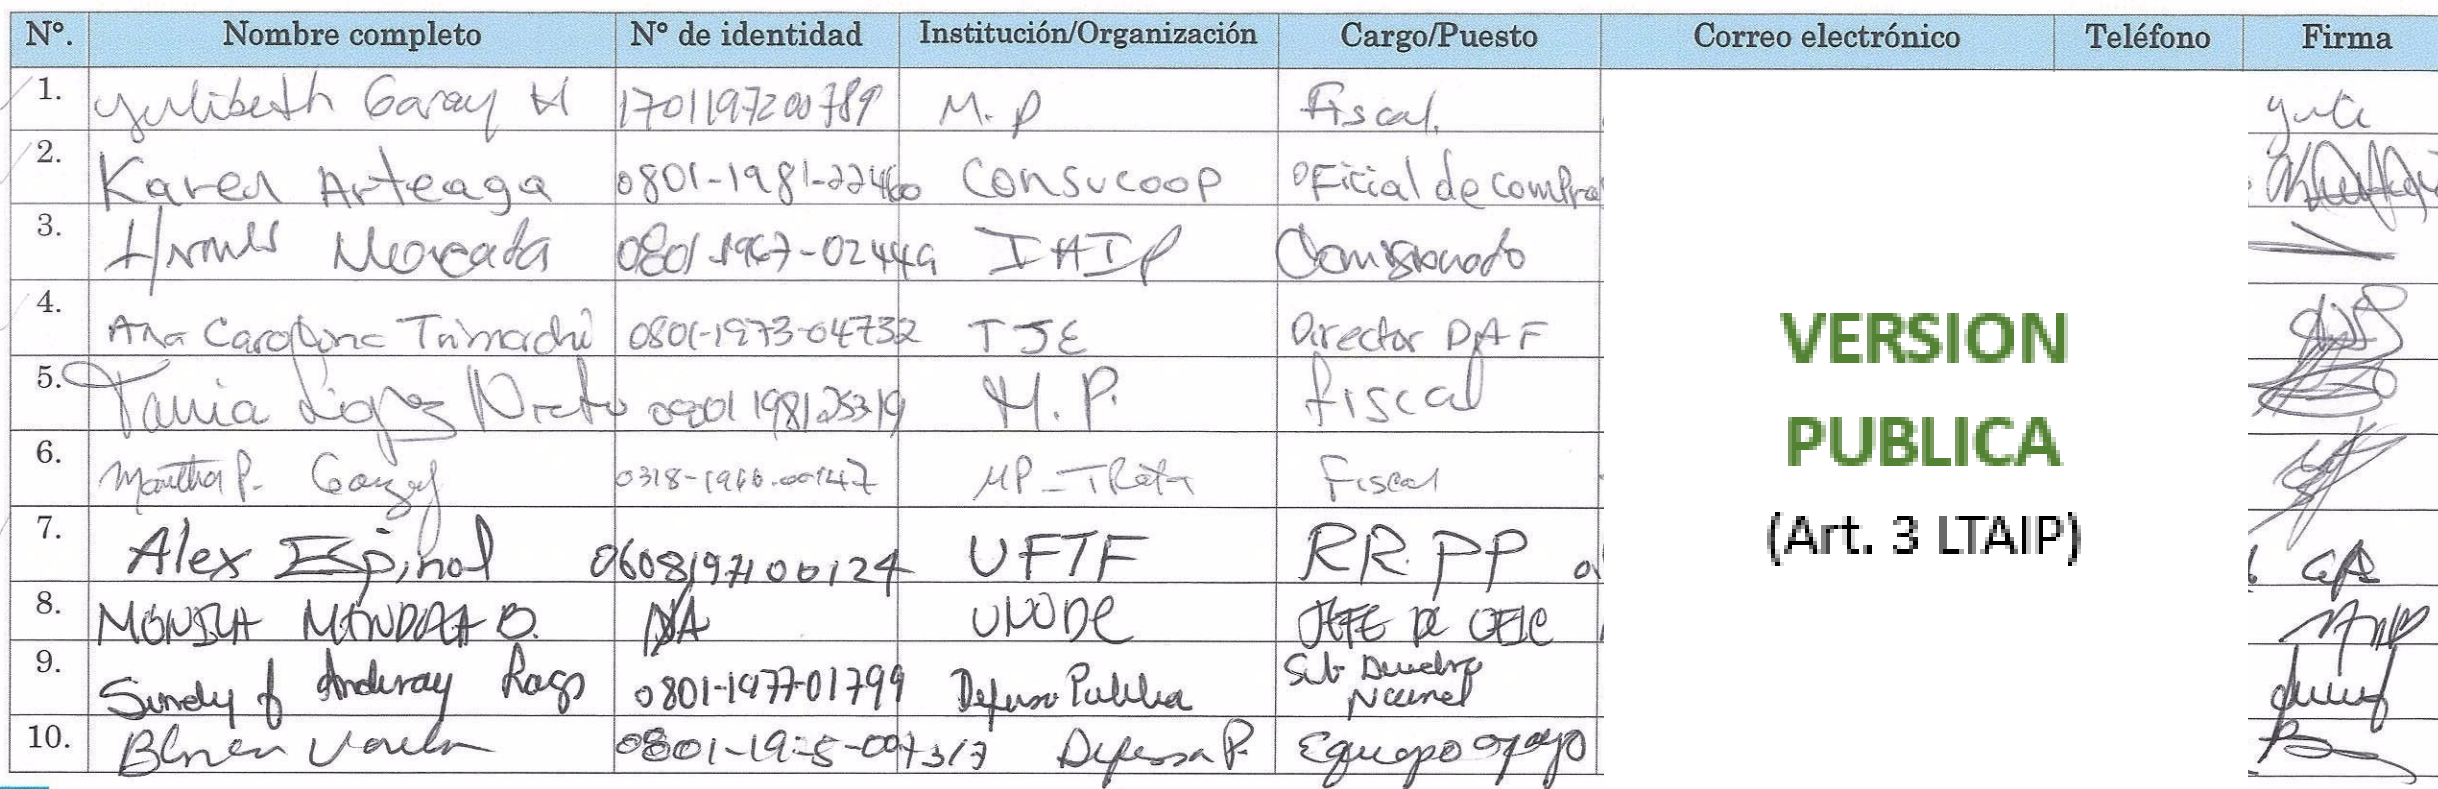 N°. Nombre completo N° de identidad Institución/Organización Cargo/Puesto Correo electrónico Teléfono Firma
1. Yulibeth Garay H 1701197200789 M.P Fiscal. Yuli
2. Karen Arteaga 0801-1981-22460 Consucoop Oficial de compra
3. 0801-1967-02449 IAIP Comisionado
4. Ana Carolina Trimarchi 0801-1973-04732 TJE Director DAF
5. Tania López Nieto 0801198125319 M.P. fiscal
6. Martha P. 0318-1966-00147 MP-TRata Fiscal
7. Alex Espinal 0608197100124 UFTF RR.PP
8. MONICA MENDOZA O. N/A UNODC JEFE DE OFIC
9. 0801-1977-01799 Defensa Publica Sub Directora
Nacional
10. Defensa P. Equipo apoyo
VERSION
PUBLICA
(Art. 3 LTAIP)